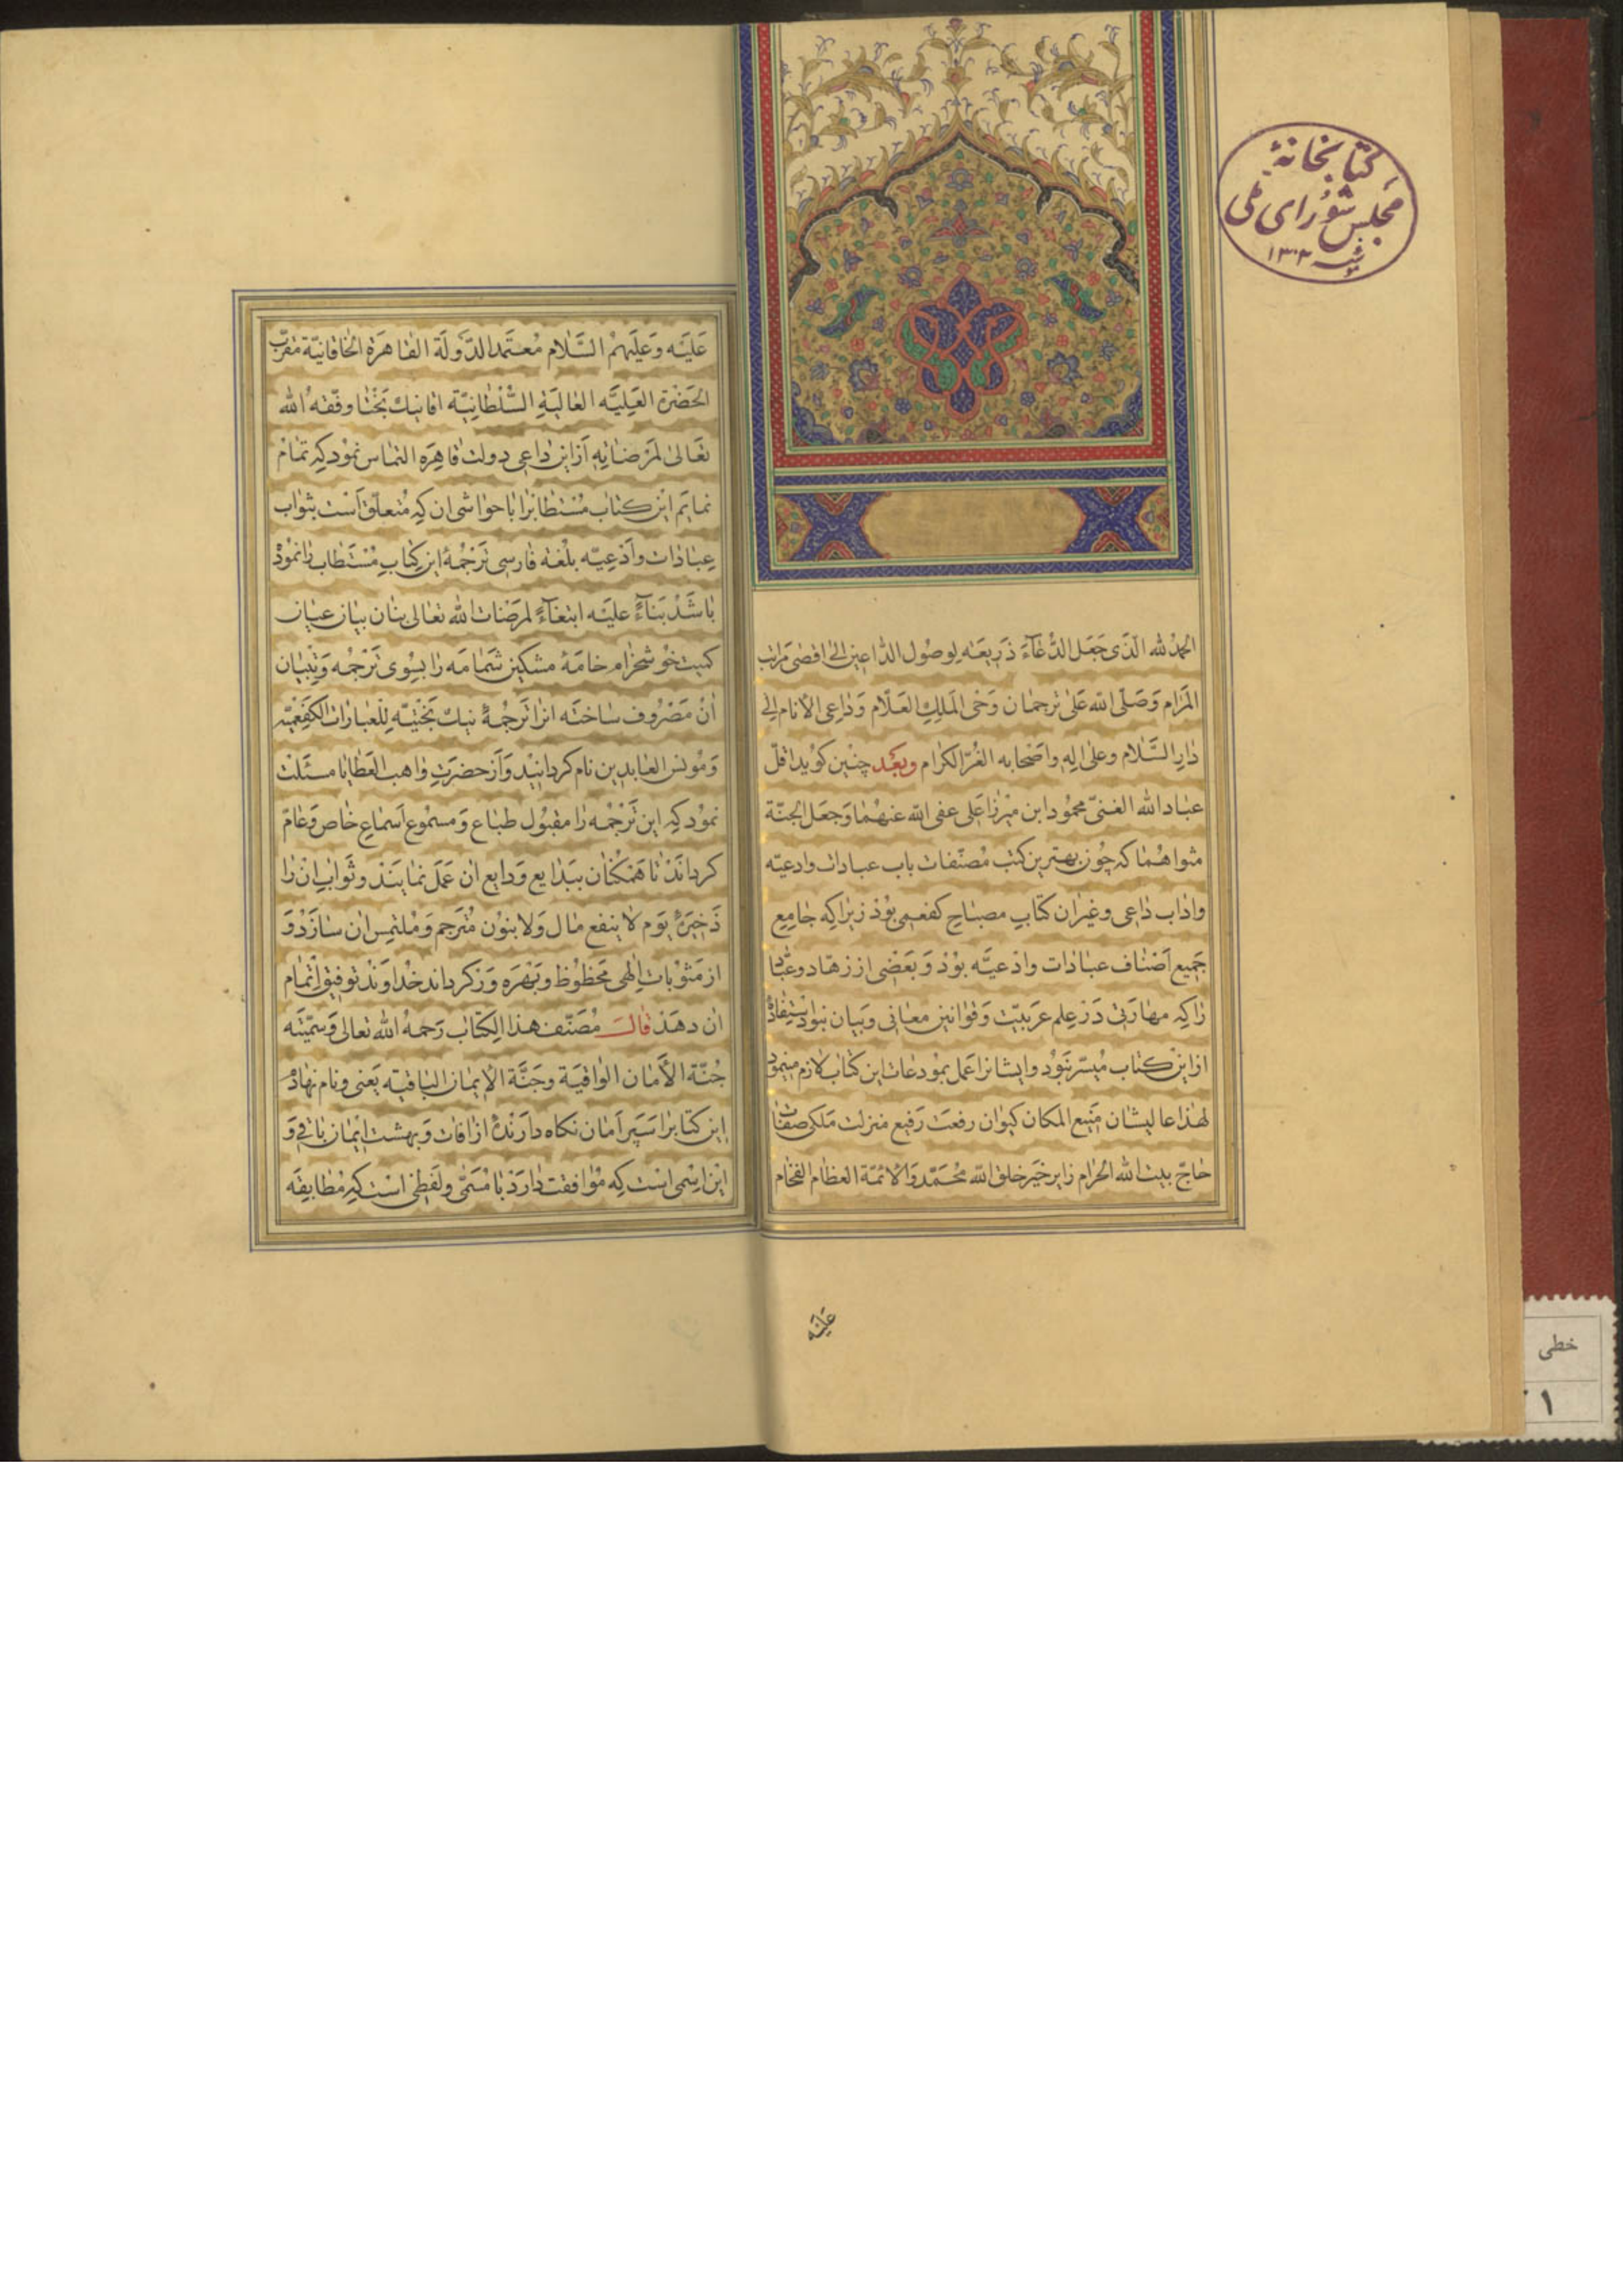 کتابخانهٔ
مجلس شورای ملی
۱۳۰۲
الحمد لله الّذی جَعَل الدُّعَآءَ ذَریعَه لِوصُول الدّاعین الیٰ اقصٰی مَراتب
المَرام وَصَلّی اللّه عَلیٰ تَرجمٰان وَحْی المَلِكِ العَلّام وَدٰاعِی الأنام اِلیٰ
دٰارِ السَّلام وعلیٰ اٰلِهِ واَصْحابه الغُرّ الکرٰام وبَعْد چنین کوید اقلّ
عبٰاد اللّٰه الغنیّ محمُود ابن میرزا عَلی عفی اللّه عنهُمٰا وَجَعَل الجنّة
مثواهُمٰا که چُون بهترین کتب مُصنّفات باب عبادات وادعیّه
واٰدٰاب دٰاعی وغیرٰ ان کتٰابِ مصبٰاحِ کفعمی بُوْد زیرٰا که جٰامِعِ
جَمِیع اَصْنٰاف عبٰادٰات وادْعیَّه بوْد وَبَعْضی از زهّاد وعُبّٰاد
رٰا که مهٰارَتی دَر عِلم عَربیّت وَقوٰانین معٰانی وَبیٰان نبوْد اسْتِفٰادهٔ
از این کتاب مُیسّر نَبوُد وایشٰانرٰا عَمَل بمُودعٰات این کتٰاب لازم مینموْد
لهٰذا عالیشٰان مَنیع المکان کیوٰان رفعَت رَفیع منزلت مَلکی صفٰات
حٰاجّ بیت اللّه الحرٰام زایر خَیر خلق اللّه مُحَمّد وَالائمّة العظٰام الفخٰام
عَلیَه
عَلَیْه وَعَلَیهمُ السَّلام مُعتَمد الدَّولَة القٰاهرَة الخٰاقانیّة مقرّب
الحَضْرَة العَلِیَّه العٰالیَةِ السُّلْطٰانِیّة اقا نیك بَخْتٰا وفّقهُ اللّٰه
تعٰالیٰ لمَرْضٰاتِهِ اَز این دٰاعی دولت قٰاهِرَه التمٰاس نموْد که تمٰام
نمایَم این کتاب مُسْتطٰابرٰا با حوٰاشی ان که مُتعلّق اَسْت بثوٰاب
عِبٰادٰات وادْعِیّه بلُغه فارسی تَرجُمهٔ این کِتٰابِ مُسْتَطٰاب رٰا نمُوْدهٔ
بٰاشَدْ بَنٰآءً علیْه ابتغٰآءً لمرَضٰات اللّه تعٰالی بنان بیٰان عیٰان
کمیت خوُشخرٰام خامَهٔ مشکین شَمٰامَه رٰا بسُوی تَرْجُمه وَتِبْیٰان
انْ مَصْرُوف سٰاختَه انرٰا تَرجُمَةُ نیك بَختِیّه لِلعِبٰارٰات الکَفعَمِیّه
وَمُونس العٰابدین نام کردانیْد وَاَز حضرَتِ وٰاهب العَطٰایا مسئَلت
نموُد که این تَرْجُمه رٰا مقبُول طبٰاع وَمسمُوع اَسمٰاع خٰاص وَعٰامّ
کردانَدْ تٰا هَمکُنٰان ببَدٰایع وَدٰایع ان عَمَل نمٰایَند وثوٰاب انْ رٰا
ذَخیرَهٔ یَوم لا ینفع مٰال وَلا بنوُن مُتَرجم وَمُلتمِس ان سٰازَدْ وَ
از مَثوُبات اِلٰهی مَحظوُظ وبَهْرَه وَر کرداند خُدٰاوَنْد توفیق اِتْمٰام
ان دهَد قٰالَ مُصَنّف هذا الکِتٰاب رَحمهُ اللّٰه تعٰالی وَسَمّیْتُه
جُنّة الأَمٰان الوٰاقیَة وجَنَّة الایمٰان البٰاقیَه یَعنی ونام نهٰادمْ
این کتابرٰا سَپَر اَمٰان نکاه دارَنْدهٔ از اٰفات وَبهشت ایمٰان بٰاقی وَ
این اِسْمی است که مُوٰافقت دٰارَد بٰا مُسَمّی ولَفظی است که مُطٰابقَه
خطی
۱